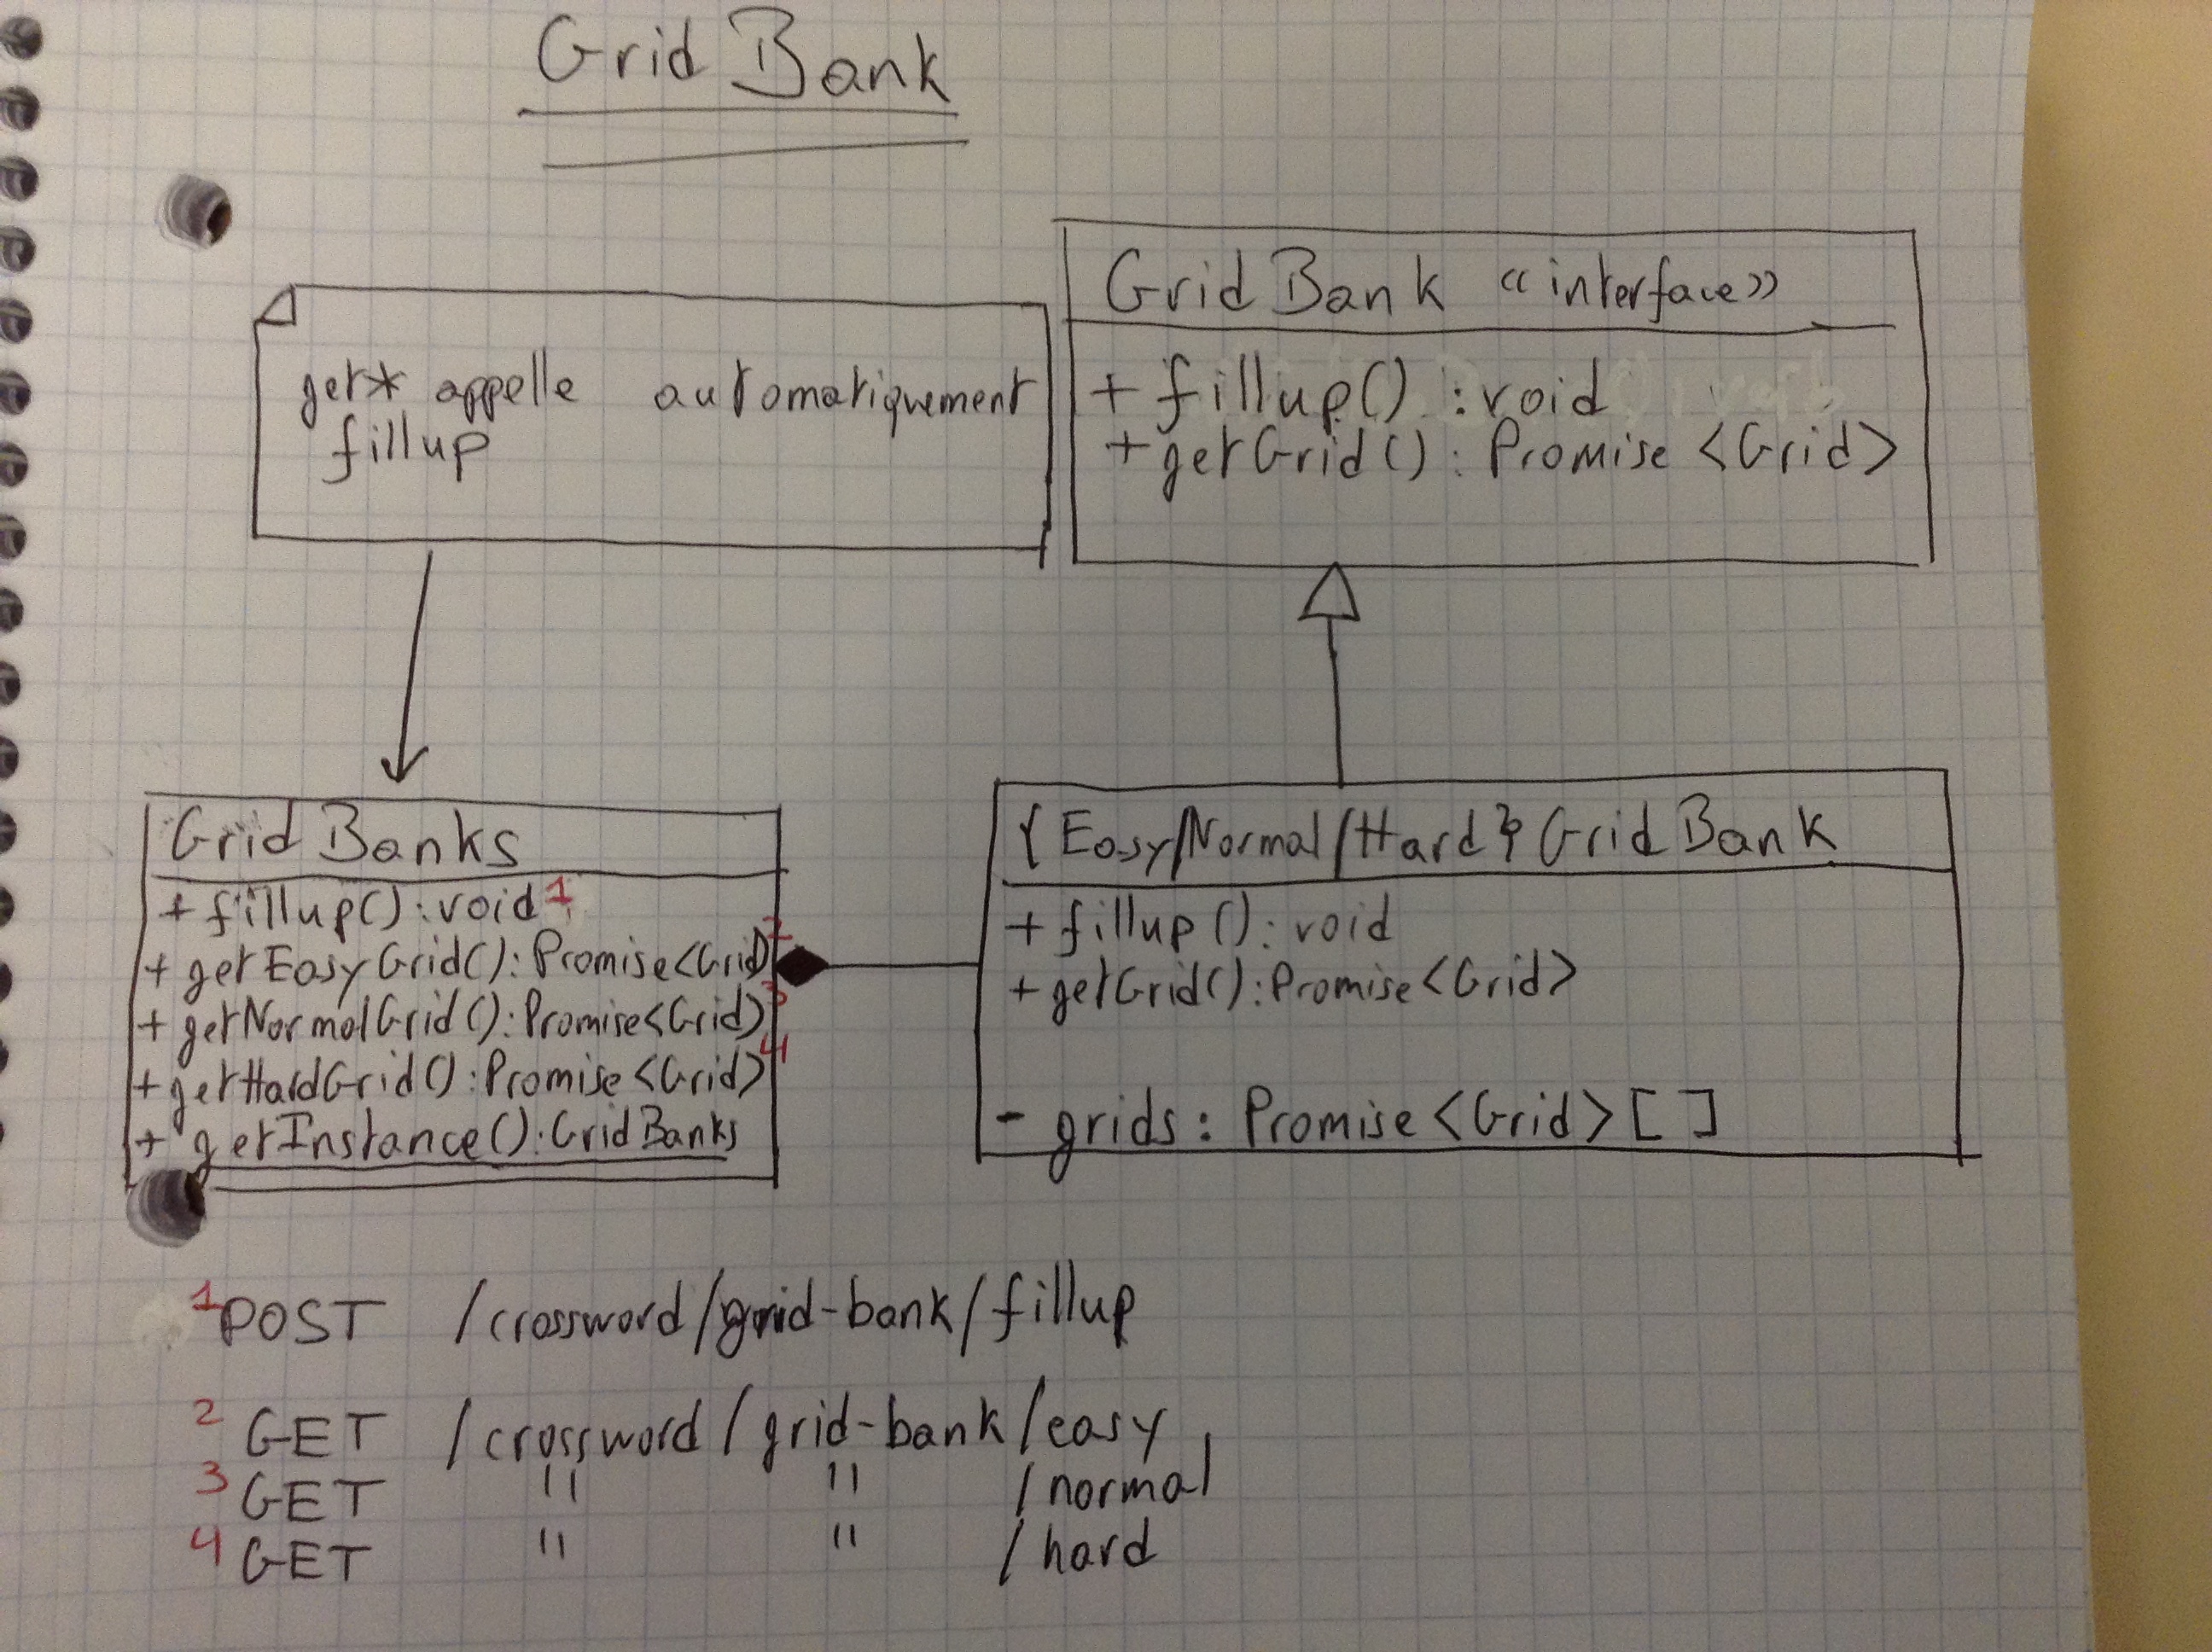 Grid Bank
get* appelle automatiquement
fillup
Grid Bank «interface»
+ fillup() : void
+ getGrid() : Promise <Grid>
Grid Banks
+ fillup() : void 1
+ getEasyGrid() : Promise<Grid> 2
+ getNormalGrid() : Promise<Grid> 3
+ getHardGrid() : Promise<Grid> 4
+ getInstance() : GridBanks
{Easy/Normal/Hard} Grid Bank
+ fillup () : void
+ getGrid() : Promise<Grid>
- grids : Promise <Grid> [ ]
1 POST /crossword/grid-bank/fillup
2 GET /crossword/grid-bank/easy
3 GET " " /normal
4 GET " " /hard